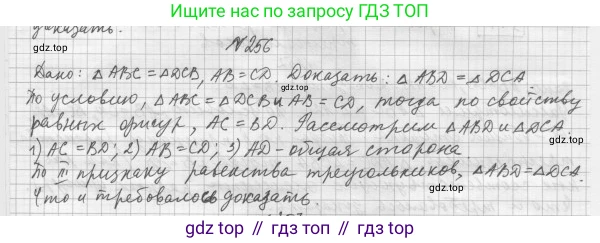 Ищите нас по запросу ГДЗ ТОП
доказать.
N 256
Дано: △ABC = △DCB, AB = CD. Доказать: △ABD = △DCA
По условию, △ABC = △DCB и AB = CD, тогда по свойству
равных фигур, AC = BD. Рассмотрим △ABD и △DCA.
1) AC = BD; 2) AB = CD; 3) AD - общая сторона.
По III признаку равенства треугольников, △ABD = △DCA.
Что и требовалось доказать.
gdz.top
gdz.top
gdz.top
gdz.top
gdz.top
gdz.top
gdz.top
gdz.top
gdz.top